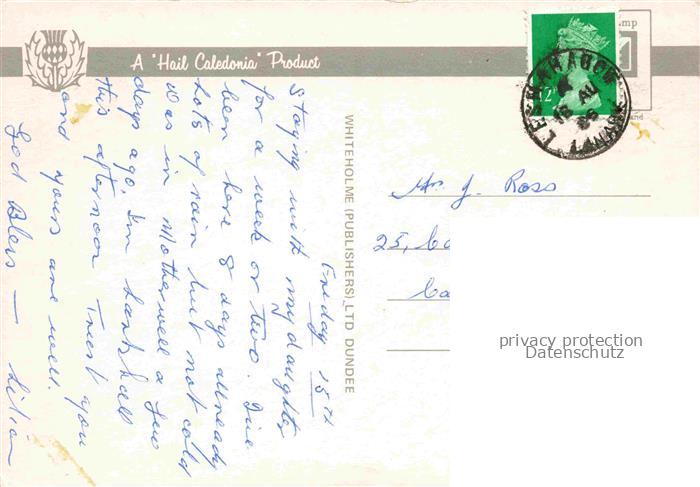 A "Hail Caledonia" Product
Friday 15th
Staying with my daughter
for a week or two. I've
been here 8 days already
lots of rain but not cold
Was in Motherwell a few
days ago. I'm
this afternoon Trust you
and yours are well.
God Bless — Lilian
WHITEHOLME (PUBLISHERS) LTD DUNDEE
LESMAHAGOW
LANARK
Mr. J. Ross
25,
privacy protection
Datenschutz